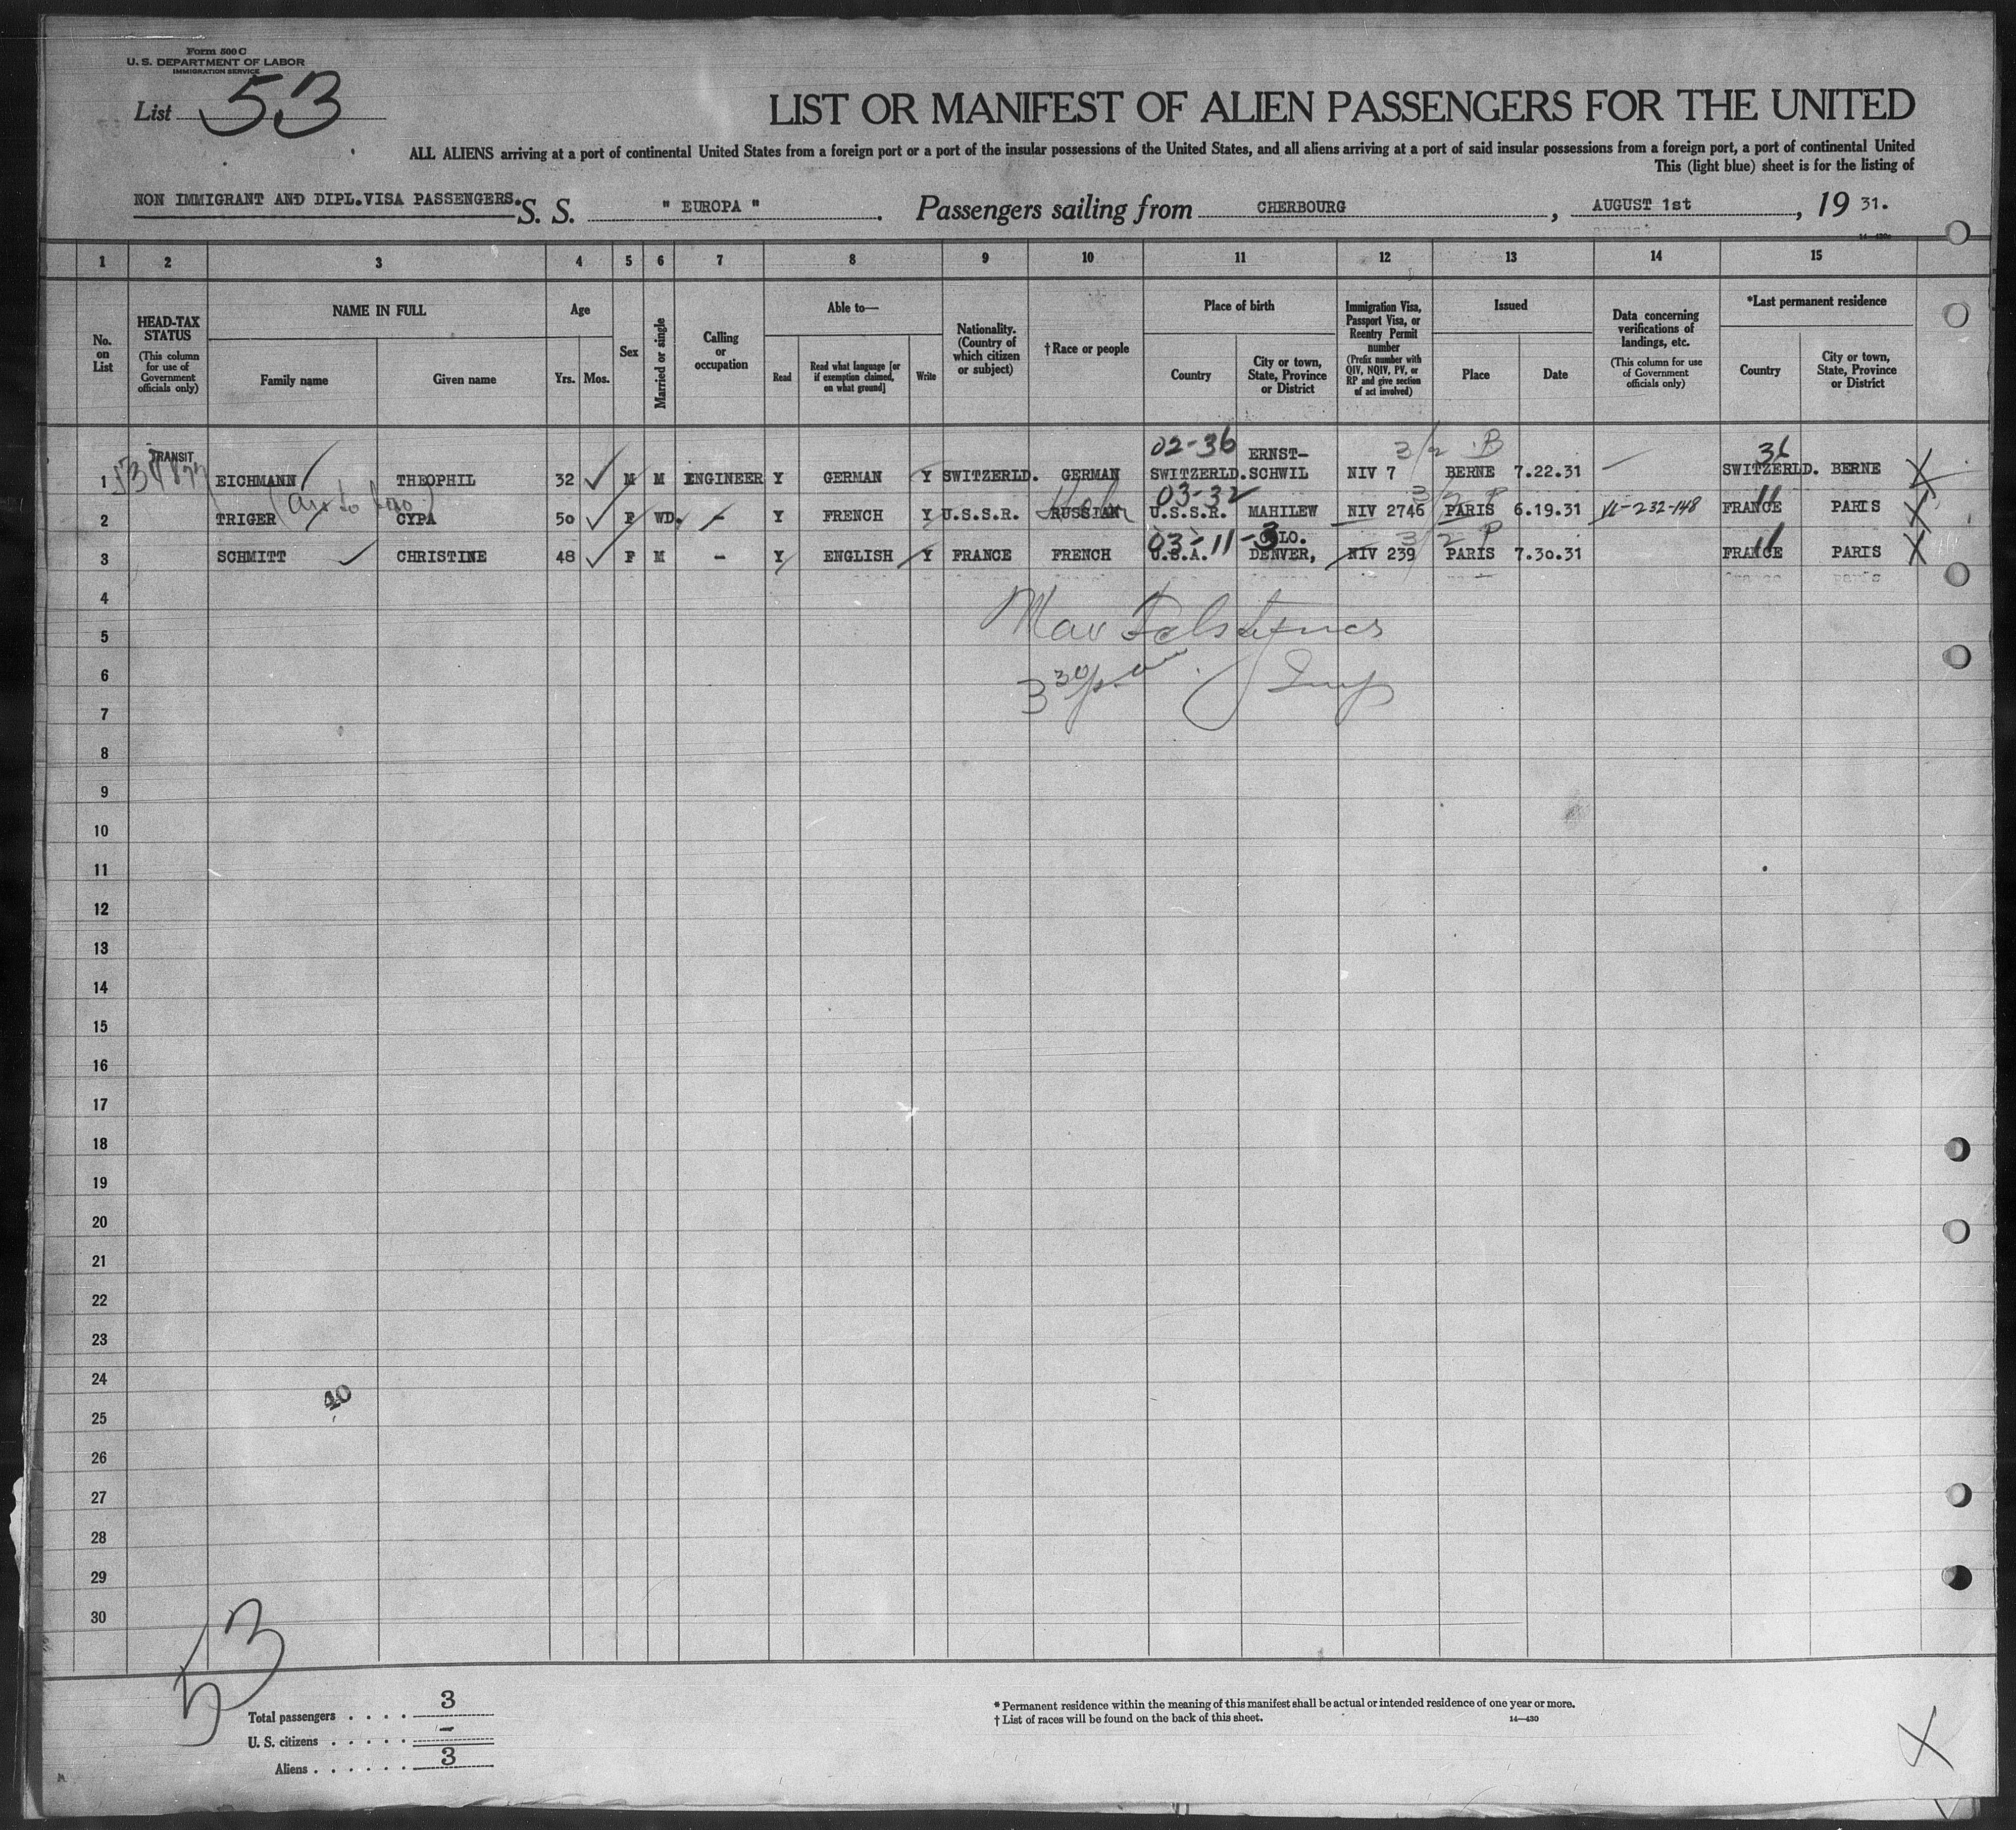 Form 500 C
U. S. DEPARTMENT OF LABOR
IMMIGRATION SERVICE
List 53
LIST OR MANIFEST OF ALIEN PASSENGERS FOR THE UNITED
ALL ALIENS arriving at a port of continental United States from a foreign port or a port of the insular possessions of the United States, and all aliens arriving at a port of said insular possessions from a foreign port, a port of continental United
This (light blue) sheet is for the listing of
NON IMMIGRANT AND DIPL.VISA PASSENGERS. S. S. " EUROPA " . Passengers sailing from CHERBOURG , AUGUST 1st , 19 31.
1 2 3 4 5 6 7 8 9 10 11 12 13 14 15
No. on List
HEAD-TAX STATUS (This column for use of Government officials only)
NAME IN FULL Family name Given name
Age Yrs. Mos.
Sex
Married or single
Calling or occupation
Able to— Read Read what language [or if exemption claimed, on what ground] Write
Nationality. (Country of which citizen or subject)
† Race or people
Place of birth Country City or town, State, Province or District
Immigration Visa, Passport Visa, or Reentry Permit number (Prefix number with QIV, NQIV, PV, or RP and give section of act involved)
Issued Place Date
Data concerning verifications of landings, etc. (This column for use of Government officials only)
*Last permanent residence Country City or town, State, Province or District
02-36 3/2 B 36
1 TRANSIT EICHMANN THEOPHIL 32 M M ENGINEER Y GERMAN Y SWITZERLD. GERMAN SWITZERLD. ERNST-SCHWIL NIV 7 BERNE 7.22.31 SWITZERLD. BERNE X
03-32 3/2 P 11
2 TRIGER CYPA 50 F WD. - Y FRENCH Y U.S.S.R. RUSSIAN U.S.S.R. MAHILEW NIV 2746 PARIS 6.19.31 VL-232-148 FRANCE PARIS X
03-11-3 3/2 P 11
3 SCHMITT CHRISTINE 48 F M - Y ENGLISH Y FRANCE FRENCH U.S.A. DENVER, COLO. NIV 239 PARIS 7.30.31 FRANCE PARIS X
4
5
3 30 pm
6
7
8
9
10
11
12
13
14
15
16
17
18
19
20
21
22
23
24
40
25
26
27
28
29
30
53
Total passengers . . . . 3
U. S. citizens . . . . . -
Aliens . . . . . . 3
* Permanent residence within the meaning of this manifest shall be actual or intended residence of one year or more.
† List of races will be found on the back of this sheet. 14—430
X